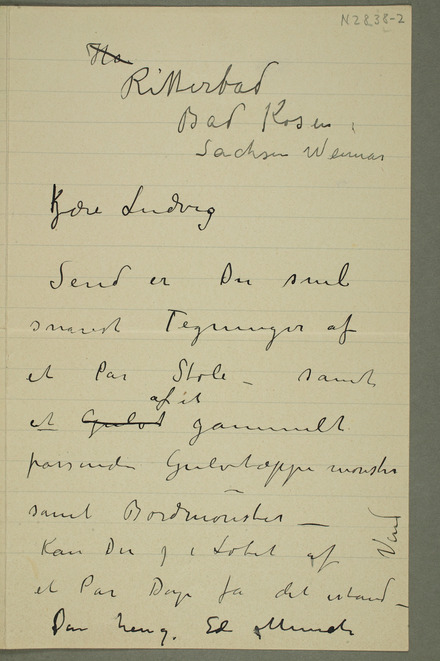 N 2838-2
Ha
Ritterbad
Bad Kosen,
Sachsen Weimar
Kjære Ludvig
Send er Du snil
snarest Tegninger af
et Par Stole – samt
af et
et Gulvt gammelt
passende Gulvtæppe mønster
samt Bordmønster –
Kan Du i Løbet af
et Par Dage få det istand –
Din heng. Ed Munch
Vend